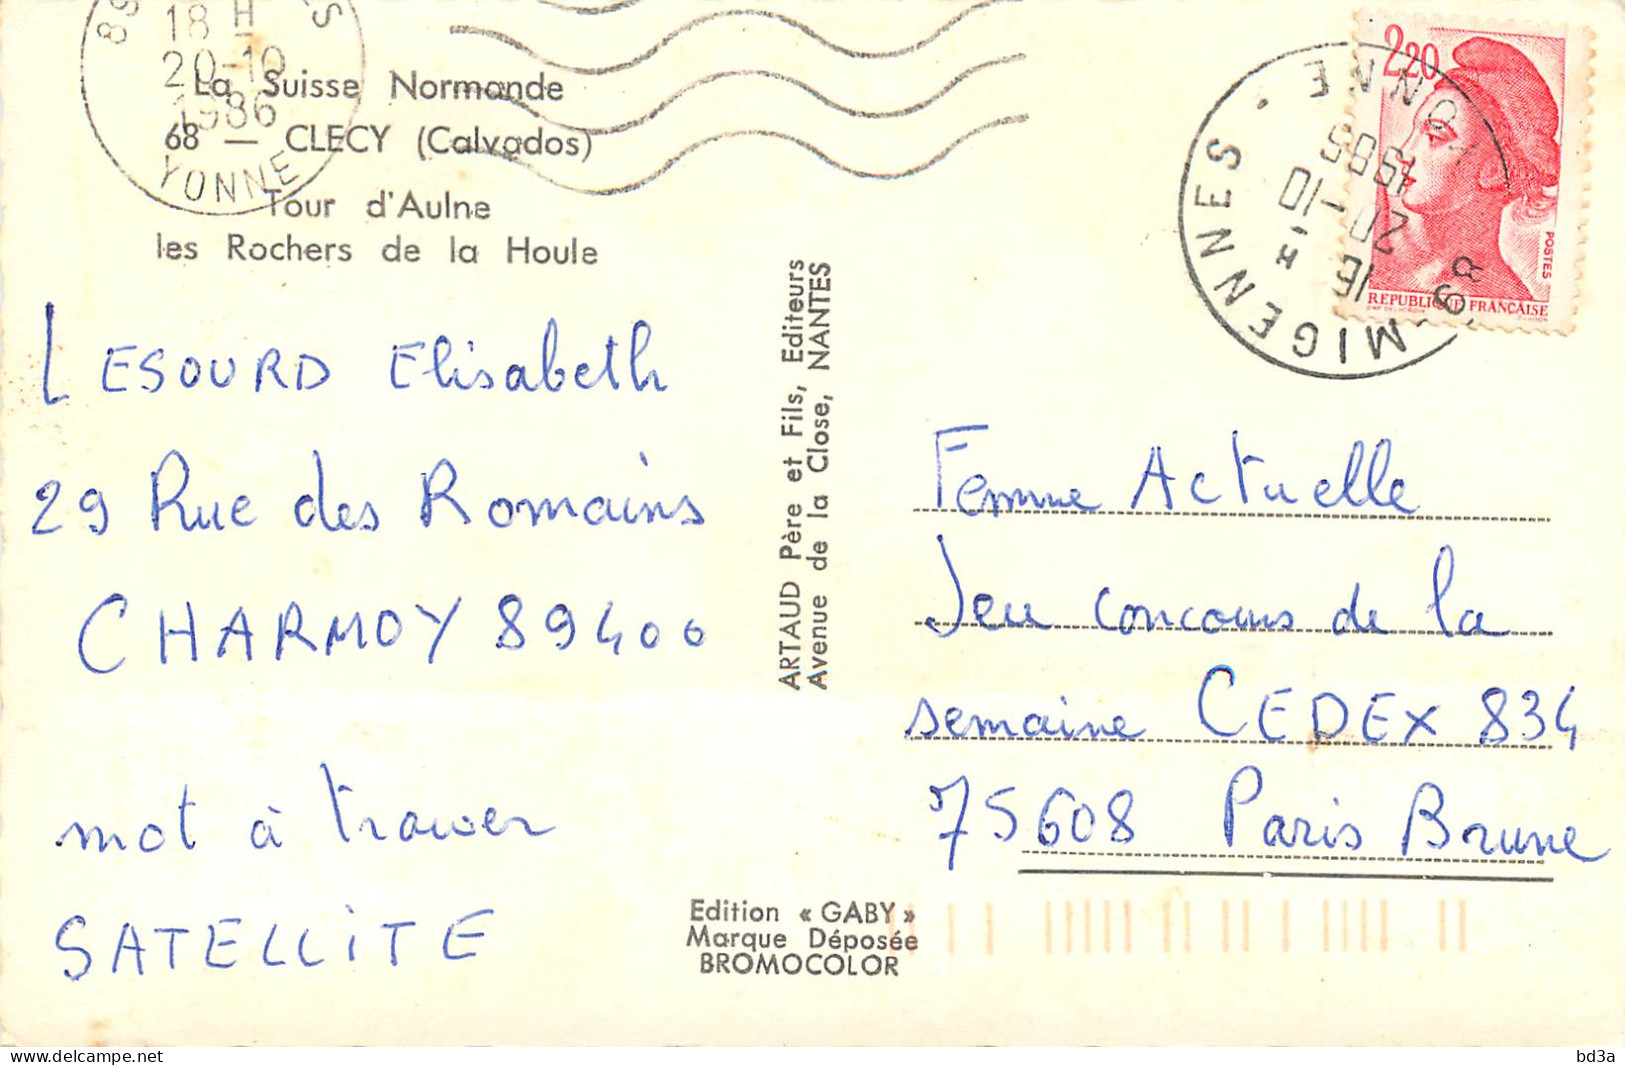 89
S
18 H
20-10
1986
YONNE
La Suisse Normande
68 — CLECY (Calvados)
Tour d'Aulne
les Rochers de la Houle
LESOURD Elisabeth
29 Rue des Romains
CHARMOY 89400
mot à trouver
SATELLITE
ARTAUD Père et Fils, Editeurs
Avenue de la Close, NANTES
Edition « GABY »
Marque Déposée
BROMOCOLOR
2,20
POSTES
REPUBLIQUE FRANÇAISE
MIGENNES • YONNE
16 H
20-10
1986
Femme Actuelle
Jeu concours de la
semaine CEDEX 834
75608 Paris Brune
bd3a